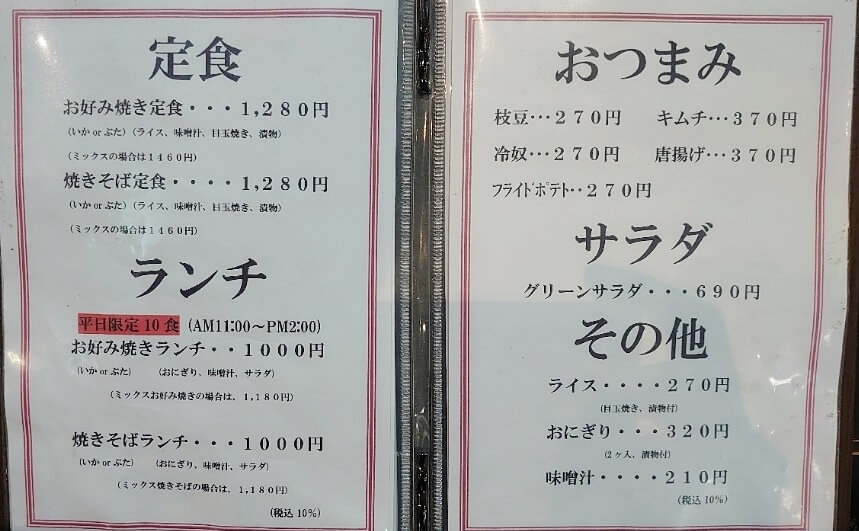 定食
お好み焼き定食・・・1,280円
(いか or ぶた)(ライス、味噌汁、目玉焼き、漬物)
(ミックスの場合は1460円)
焼きそば定食・・・・1,280円
(いか or ぶた)(ライス、味噌汁、目玉焼き、漬物)
(ミックスの場合は1460円)
ランチ
平日限定10食 (AM11:00～PM2:00)
お好み焼きランチ・・1000円
(いか or ぶた) (おにぎり、味噌汁、サラダ)
(ミックスお好み焼きの場合は、1,180円)
焼きそばランチ・・・1000円
(いか or ぶた) (おにぎり、味噌汁、サラダ)
(ミックス焼きそばの場合は、1,180円)
(税込10%)
おつまみ
枝豆・・・270円 キムチ・・・370円
冷奴・・・270円 唐揚げ・・・370円
フライドポテト・・270円
サラダ
グリーンサラダ・・・690円
その他
ライス・・・・270円
(目玉焼き、漬物付)
おにぎり・・・320円
(2ヶ入、漬物付)
味噌汁・・・・210円
(税込10%)